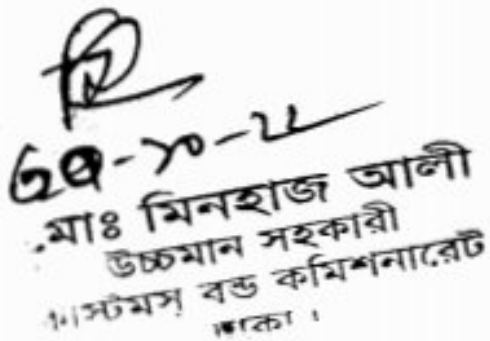 -১০-২২
মোঃ মিনহাজ আলী
উচ্চমান সহকারী
কাস্টমস্ বন্ড কমিশনারেট
ঢাকা ।